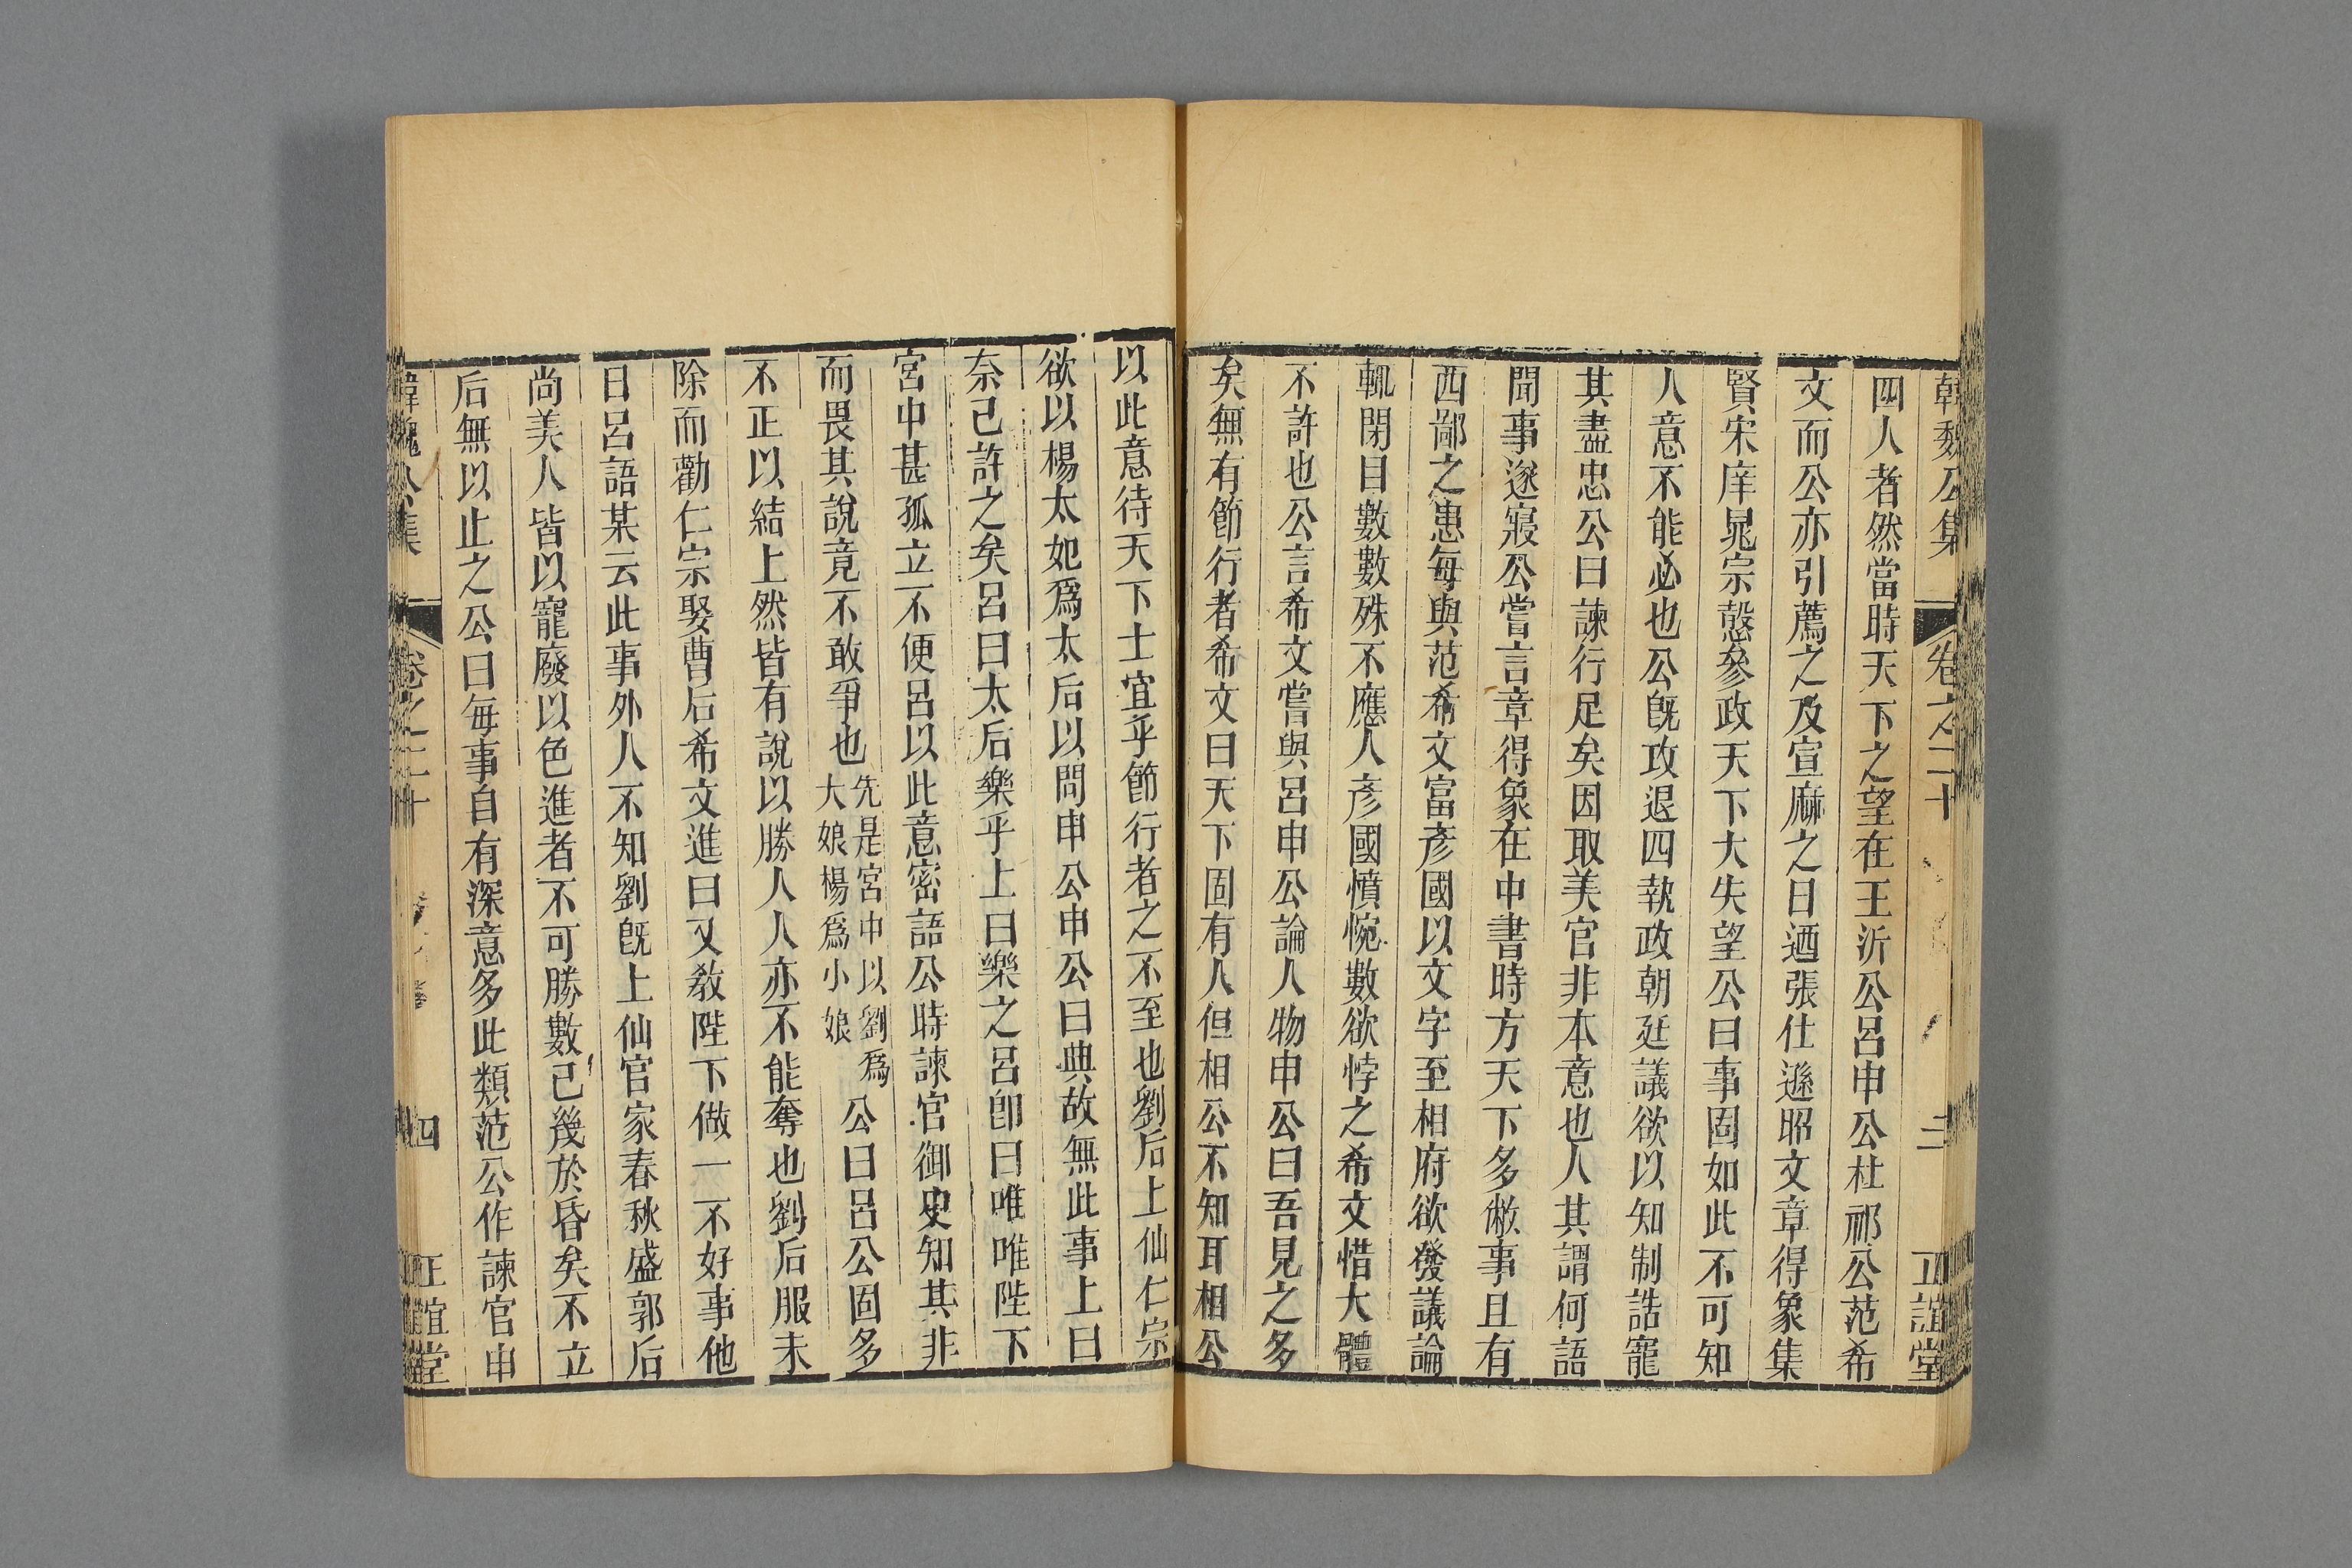 韓魏公集 卷之二十 三 正誼堂
四人者然當時天下之望在王沂公呂申公杜祁公范希
文而公亦引薦之及宣麻之日迺張仕遜昭文章得象集
賢宋庠晁宗慤參政天下大失望公曰事固如此不可知
人意不能必也公旣攻退四執政朝廷議欲以知制誥寵
其盡忠公曰諫行足矣因取美官非本意也人其謂何語
聞事遂寢公嘗言章得象在中書時方天下多敝事且有
西鄙之患每與范希文富彥國以文字至相府欲發議論
輒閉目數數殊不應人彥國憤惋數欲悖之希文惜大體
不許也公言希文嘗與呂申公論人物申公曰吾見之多
矣無有節行者希文曰天下固有人但相公不知耳相公
以此意待天下士宜乎節行者之不至也劉后上仙仁宗
欲以楊太妃爲太后以問申公申公曰典故無此事上曰
奈已許之矣呂曰太后樂乎上曰樂之呂卽曰唯唯陛下
宮中甚孤立不便呂以此意密語公時諫官御史知其非
而畏其說竟不敢爭也先是宮中以劉爲大娘楊爲小娘公曰呂公固多
不正以結上然皆有說以勝人人亦不能奪也劉后服未
除而勸仁宗娶曹后希文進曰又敎陛下做一不好事他
日呂語某云此事外人不知劉旣上仙官家春秋盛郭后
尚美人皆以寵廢以色進者不可勝數已幾於昏矣不立
后無以止之公曰每事自有深意多此類范公作諫官申
韓魏公集 卷之二十 四 正誼堂